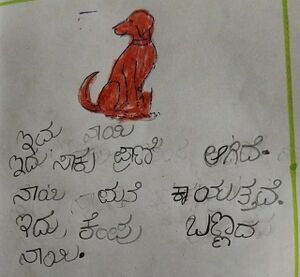 ಇದು ನಾಯಿ
ಇದು ಸಾಕು ಪ್ರಾಣಿ ಆಗಿದೆ.
ನಾಯಿ ಮನೆ ಕಾಯುತ್ತದೆ.
ಇದು ಕೆಂಪು ಬಣ್ಣದ
ನಾಯಿ.